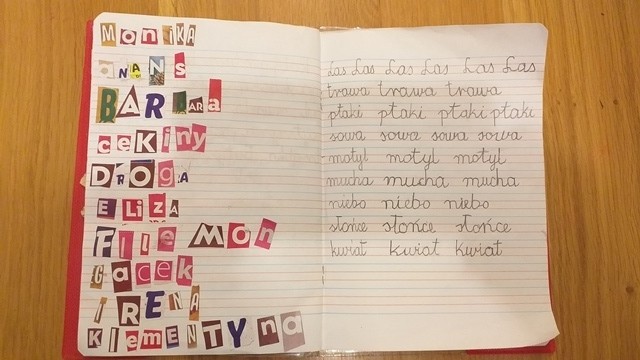 MoniKA
ANANS
BARBARA
ceKiny
DROGA
ELIZA
FILEMON
Gacek
IRENA
KlementyNa
Las Las Las Las Las Las
trawa trawa trawa
ptaki ptaki ptaki ptaki
sowa sowa sowa sowa
motyl motyl motyl
mucha mucha mucha
niebo niebo niebo
słońce słońce słońce
kwiat kwiat kwiat